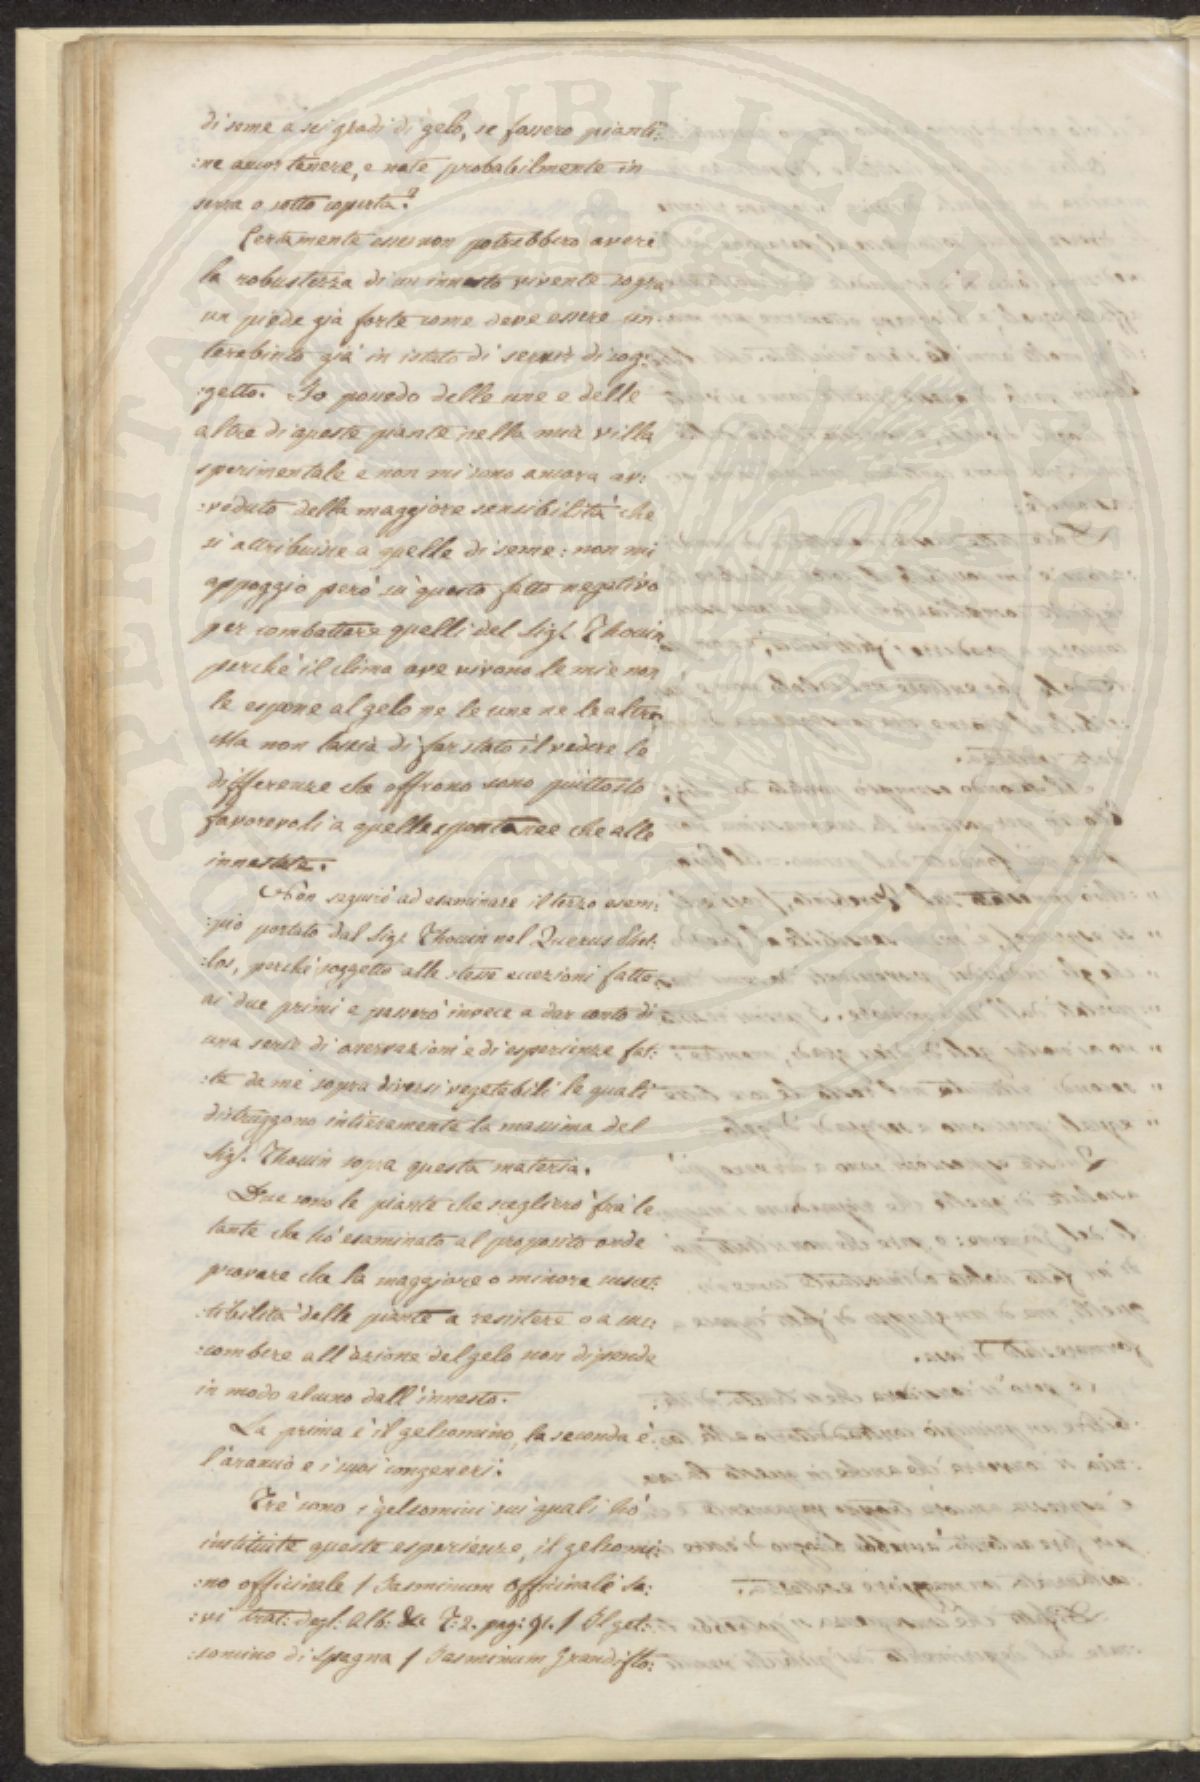 di seme a sei gradi di gelo, se fossero pianti:
:ne ancor tenere, e nate probabilmente in
serra o sotto coperta?
Certamente esse non potrebbero avere
la robustezza di un innesto vivente sopra
un piede già forte come deve essere un
terebinto già in istato di servir di sog:
:getto. Io possedo delle une e delle
altre di queste piante nella mia villa
sperimentale e non mi sono ancora av:
:veduto della maggiore sensibilità che
si attribuisce a quelle di seme: non mi
appoggio però su questo fatto negativo
per combattere quelli del Sigr. Thouin,
perchè il clima ove vivono le mie non
le espone al gelo ne le une ne le altre.
Ma non lascia di far stato il vedere le
differenze che offrono sono piuttosto
favorevoli a quelle spontanee che alle
innestate.
Non seguirò ad esaminare il terzo esem:
:pio portato dal Sigr. Thouin nel Quercus
:los, perchè soggetto alle stesse eccezioni fatte
ai due primi e passerò invece a dar conto di
una serie di osservazioni e di esperienze fat:
:te da me sopra diversi vegetabili le quali
distruggono intieramente la massima del
Sigr. Thouin sopra questa materia.
Due sono le piante che sceglierò frà le
tante che hò esaminato al proposito onde
provare che la maggiore o minore suscet:
:tibilità delle piante a resistere o a suc:
:combere all'azione del gelo non dipende
in modo alcuno dall'innesto.
La prima è il gelsomino, la seconda è
l'arancio e i suoi congeneri.
Trè sono i gelsomini sui quali hò
instituite queste esperienze, il gelsomi:
:no officinale / Jasminum Officinale Sa:
:vi trat: degl. Alb: &a T: 2. pag: 91. / Il gel:
:somino di Spagna / Jasminum Grandiflo:
SPERITAT PUBLICAE AUG